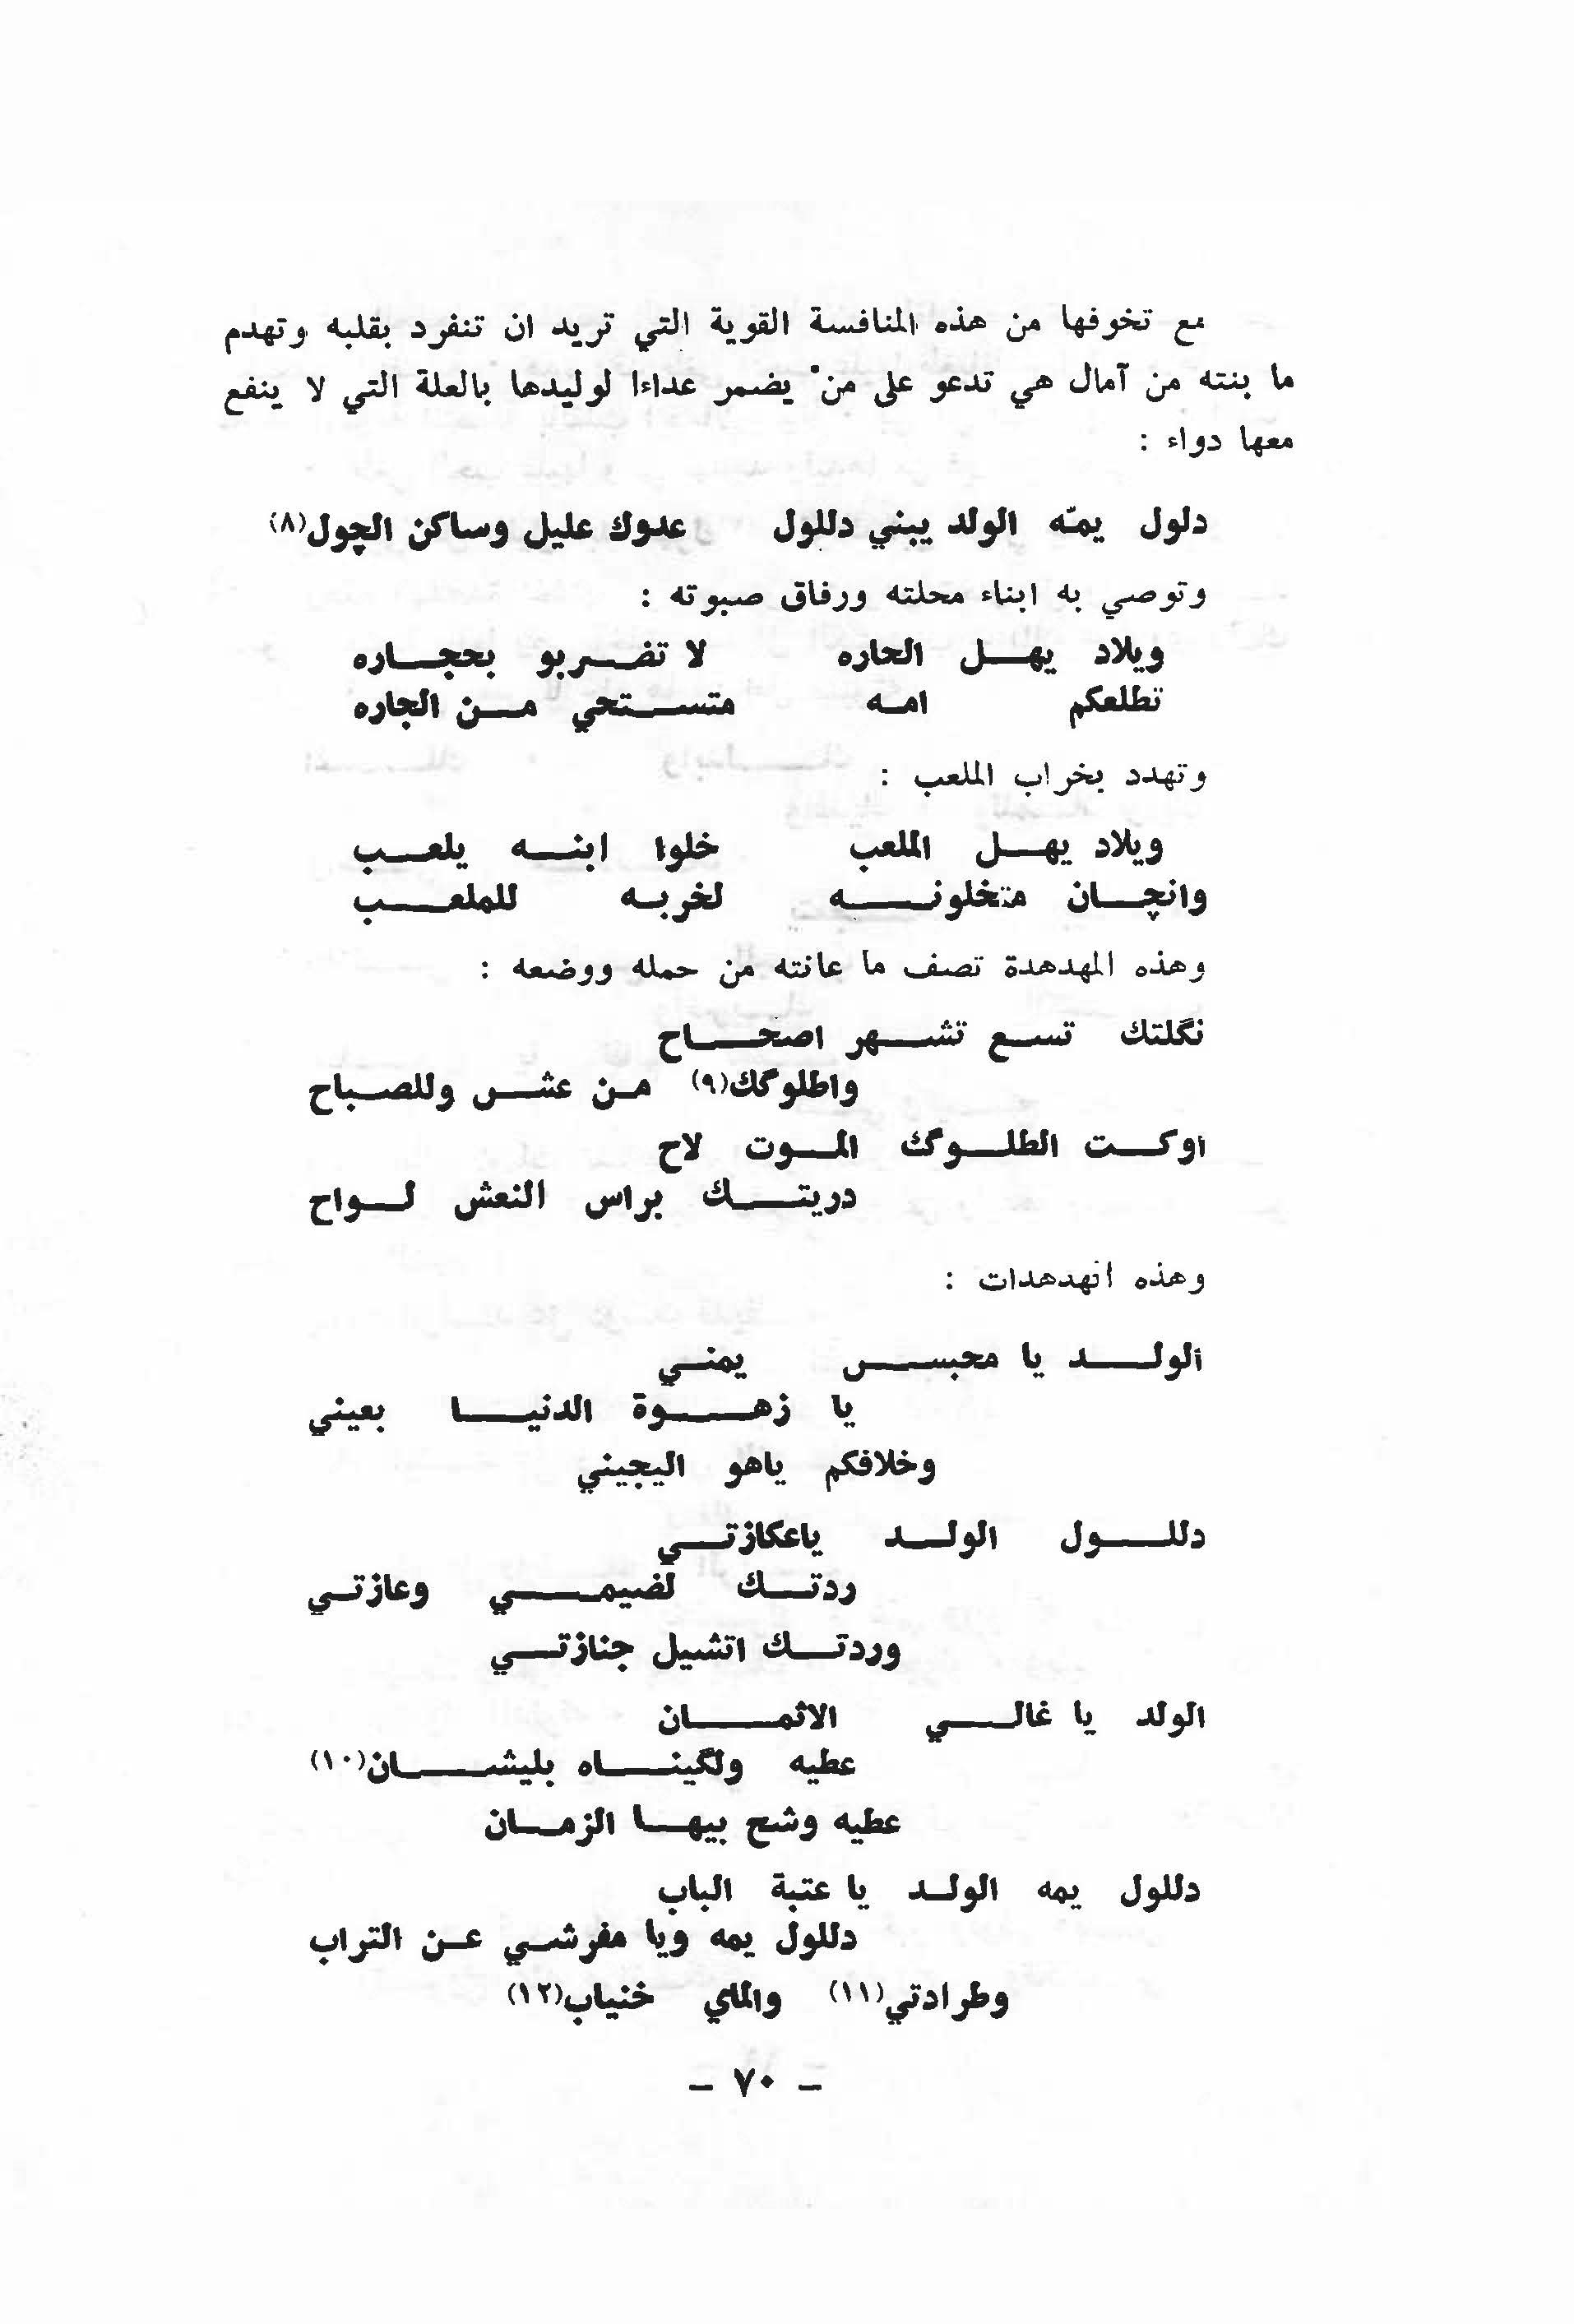 مع تخوفها من هذه المنافسة القوية التي تريد ان تنفرد بقلبه وتهدم
ما بنته من آمال هي تدعو على منْ يضمر عداءا لوليدها بالعلة التي لا ينفع
معها دواء :
دلول يمّه الولد يبني دللول عدوك عليل وساكن الچول(٨)
وتوصي به ابناء محلته ورفاق صبوته :
ويلاد يهل الحاره لا تضربو بحجاره
تطلعكم امه متستحي من الجاره
وتهدد بخراب الملعب :
ويلاد يهل الملعب خلوا ابنه يلعب
وانچان متخلونه لخربه للملعب
وهذه المهدهدة تصف ما عانته من حمله ووضعه :
نگلتك تسع تشهر اصحاح
واطلوگك(٩) من عشر وللصباح
اوكت الطلوگك الموت لاح
دريتك براس النعش لواح
وهذه الهدهدات :
ألولد يا محبس يمني
يا زهوة الدنيا بعيني
وخلافكم ياهو اليجيني
دللول الولد ياعكازتي
ردتك لضيمي وعازتي
وردتك اتشيل جنازتي
الولد يا غالي الاثمان
عطيه ولگيناه بليشان(١٠)
عطيه وشح بيها الزمان
دللول يمه الولد يا عتبة الباب
دللول يمه ويا مفرشي عن التراب
وطرادتي(١١) والماي خنياب(١٢)
– ٧٠ –